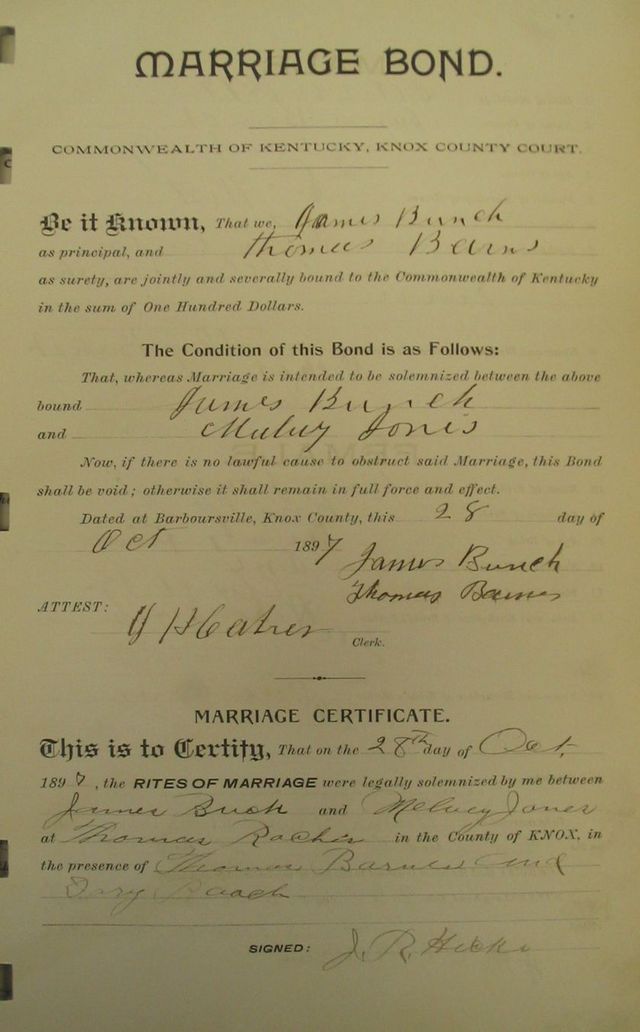 MARRIAGE BOND.
COMMONWEALTH OF KENTUCKY, KNOX COUNTY COURT.
Be it Known, That we, James Bunch
as principal, and Thomas Barns
as surety, are jointly and severally bound to the Commonwealth of Kentucky
in the sum of One Hundred Dollars.
The Condition of this Bond is as Follows:
That, whereas Marriage is intended to be solemnized between the above
bound James Bunch
and Jones
Now, if there is no lawful cause to obstruct said Marriage, this Bond
shall be void; otherwise it shall remain in full force and effect.
Dated at Barboursville, Knox County, this 28 day of
Oct 1897
James Bunch
Thomas Barnes
ATTEST:
Clerk.
MARRIAGE CERTIFICATE.
This is to Certify, That on the 28th day of Oct,
1897, the RITES OF MARRIAGE were legally solemnized by me between
James Buch and Melvey Jones
at Thomas in the County of KNOX, in
the presence of Thomas Barnes and
SIGNED: J. R. Hicks